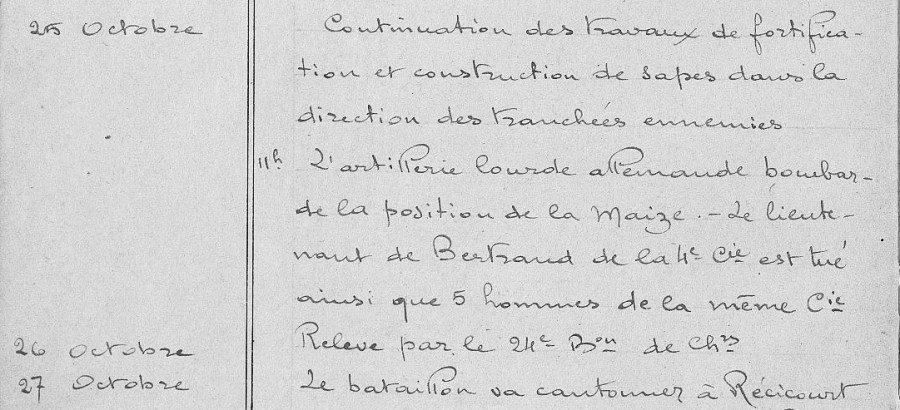 25 Octobre Continuation des travaux de fortifica-
tion et construction de sapes dans la
direction des tranchées ennemies
11h L'artillerie lourde allemande bombar-
de la position de la Maize. - Le lieute-
nant de Bertrand de la 4e Cie est tué
ainsi que 5 hommes de la même Cie
26 Octobre Releve par le 24e Bon de Chrs
27 Octobre Le bataillon va cantonner à Récicourt